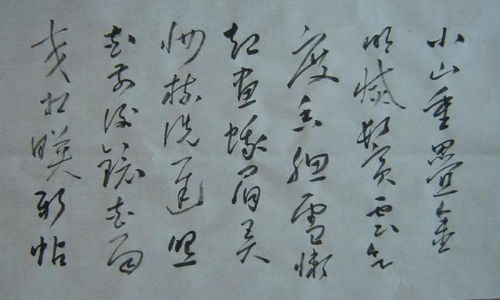 小山重疊金
明滅鬢雲欲
度香腮雪懶
起畫蛾眉弄
妝梳洗遲照
花前後鏡花面
交相映新帖